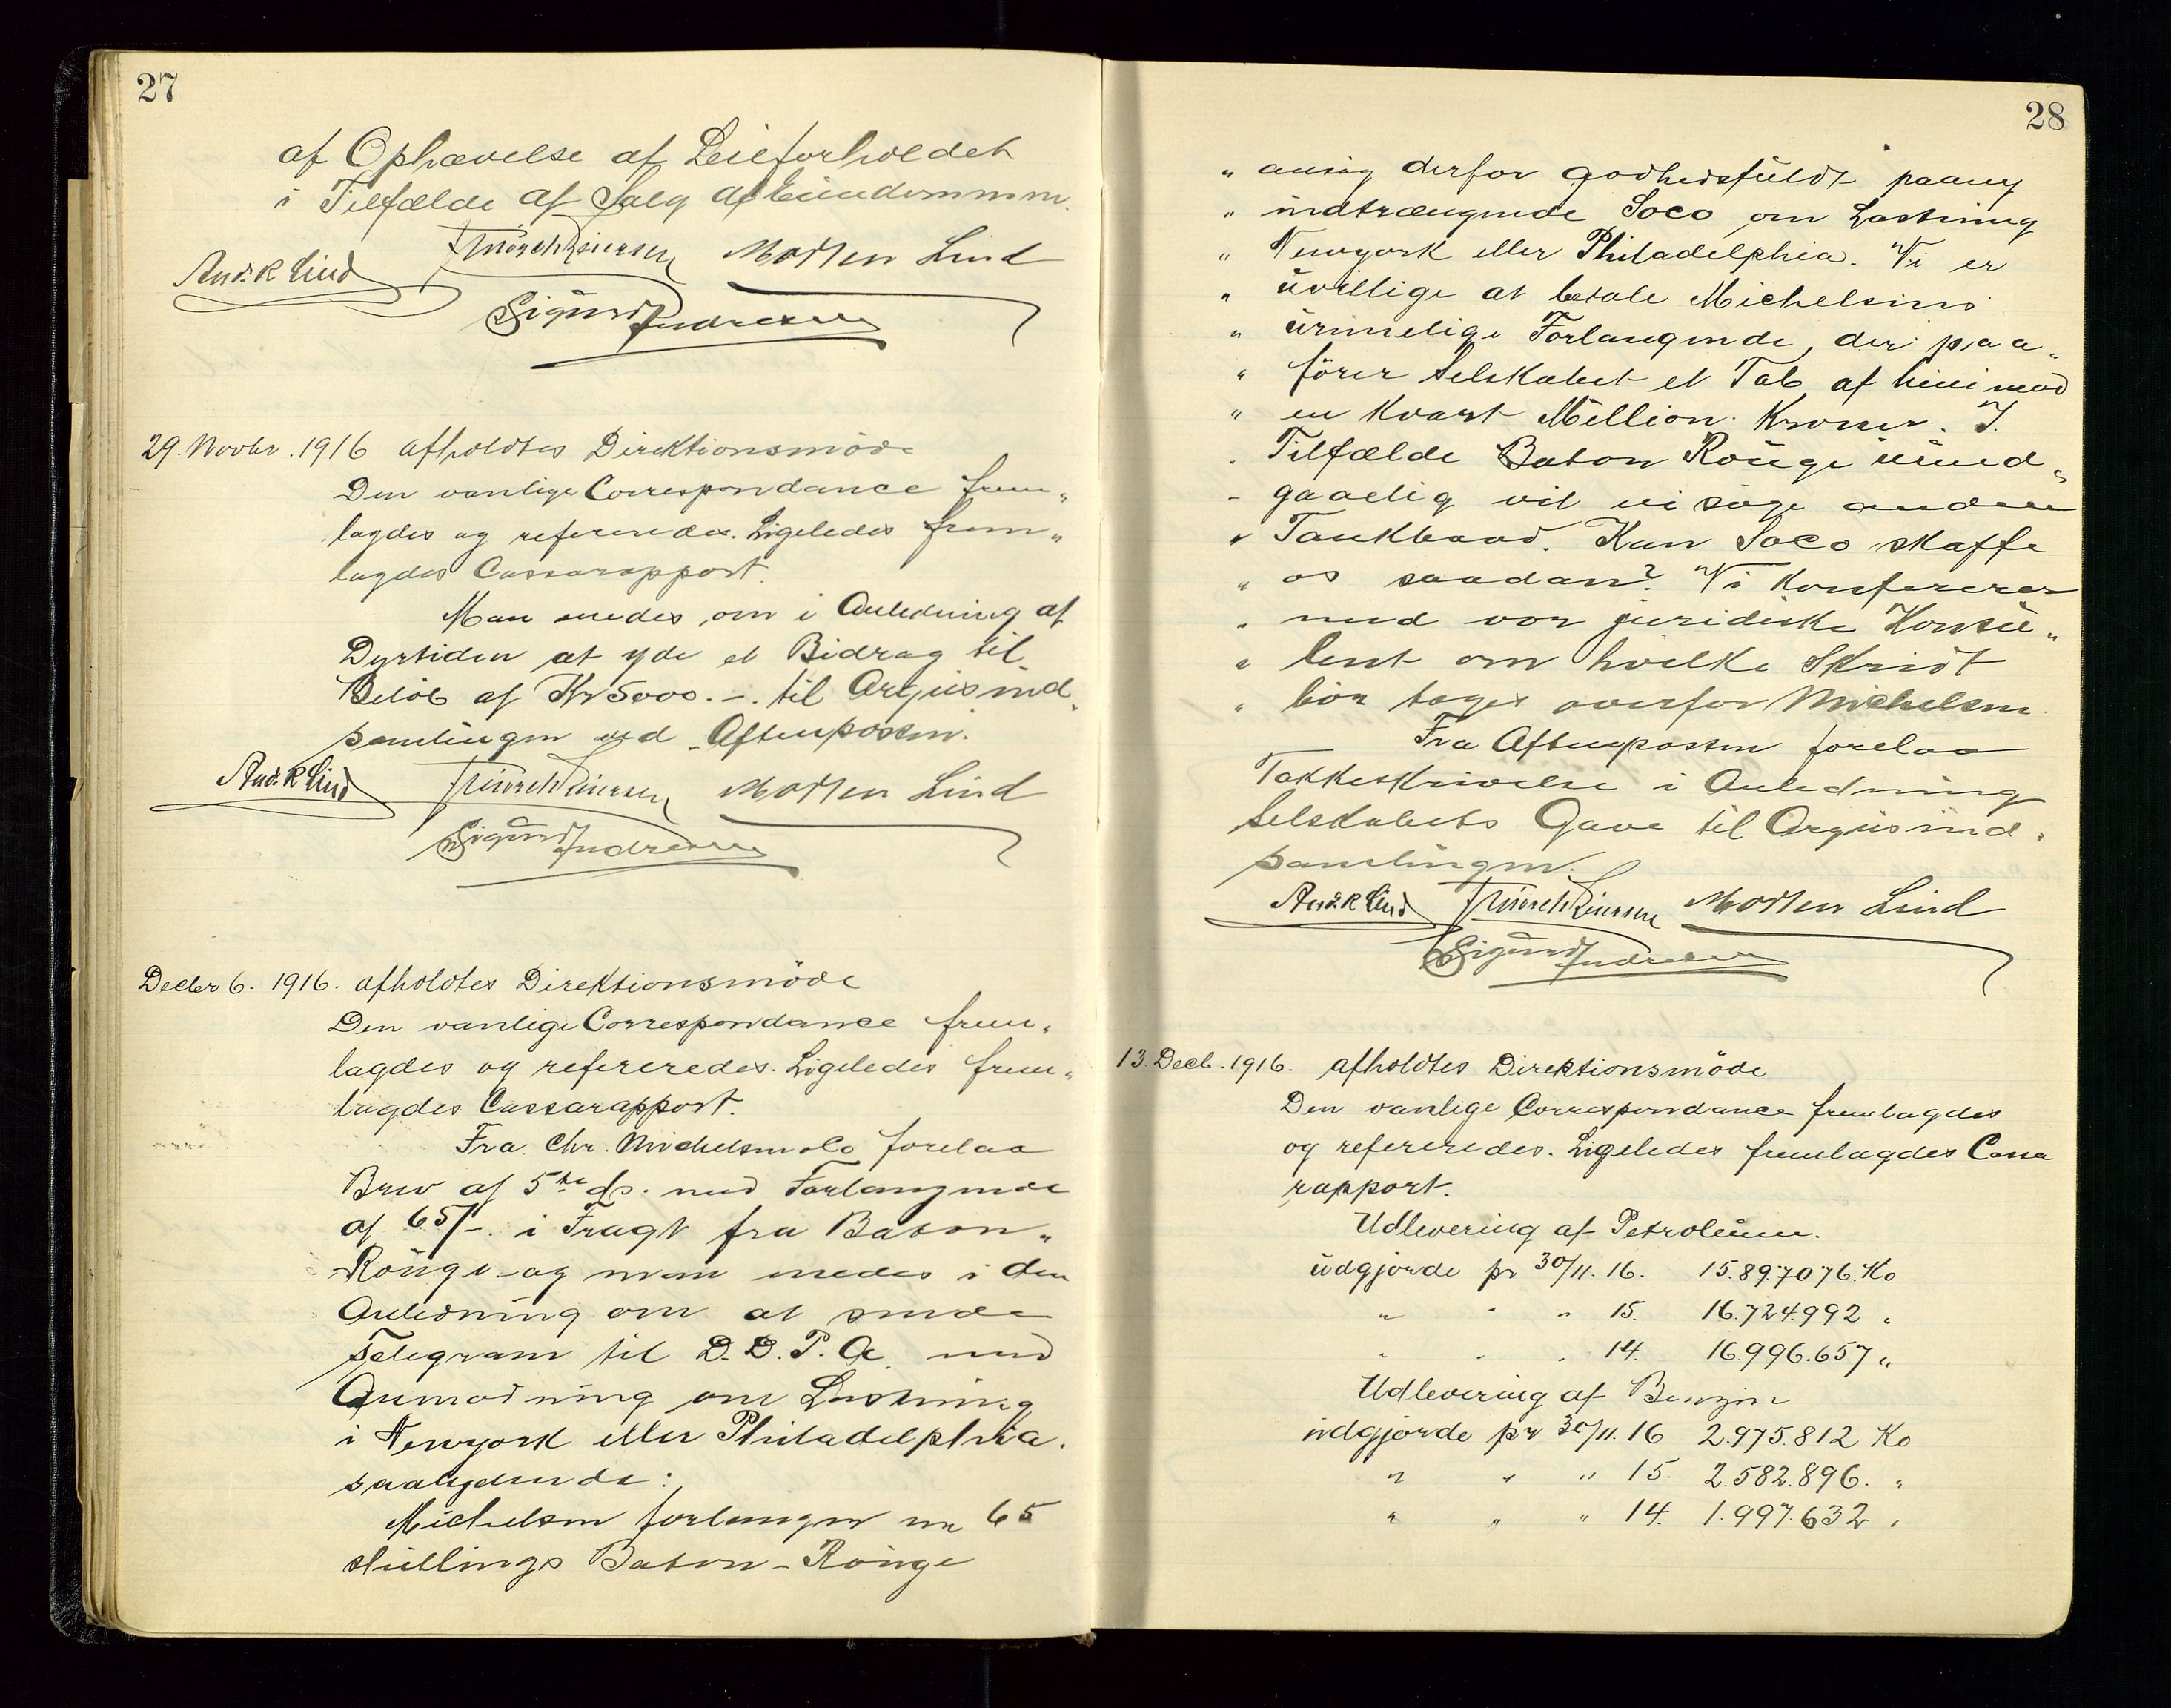 27
af Ophævelse af Leieforholdet
i Tilfælde af Salg af Eiendommen.
And. R Lind Morten Lind
Sigurd Andresen
29. Novbr. 1916 afholdtes Direktionsmöde
Den vanlige Correspondance frem„
lagdes og refereredes. Ligeledes frem„
lagdes Cassarapport.
Man enedes om i Anledning af
Dyrtiden at yde et Bidrag til
Belöb af Kr 5000.-. til Argus ind„
samlingen ved Aftenposten.
And. R Lind Morten Lind
Sigurd Andresen
Decbr 6. 1916. afholdtes Direktionsmöde
Den vanlige Correspondance frem„
lagdes og refereredes. Ligeledes frem„
lagdes Cassarapport.
Fra Chr. Michelsen & Co forelaa
Brev af 5te ds. med Forlangende
af 65/-. i Fragt fra Baton„
Rouge og man enedes i den
Anledning om at sende
Telegram til D. D. P. A. med
Anmodning om Lastning
i Newyork eller Philadelphia.
saalydende:
Michelsen forlanger nu 65
shillings Baton-Rouge
28
„ ansög derfor godhedsfuldt paany
„ indtrængende Soco om Lastning
„ Newyork eller Philadelphia. Vi er
„ uvillige at betale Michelsens
„ urimelige Forlangende, der paa„
„ förer Selskabet et Tab af henimod
„ en Kvart Million Kroner. I
„ Tilfælde Baton Rouge uund„
„ gaaelig vil vi söge anden
„ Tankbaad. Kan Soco skaffe
„ os saadan? Vi konfererer
„ med vor juridiske Konsu„
„ lent om hvilke Skridt
„ bör tages overfor Michelsen.
Fra Aftenposten forelaa
Takkeskrivelse i Anledning
Selskabets Gave til Argus ind„
samlingen.
And. R Lind Morten Lind
Sigurd Andresen
13. Decb. 1916. afholdtes Direktionsmöde
Den vanlige Correspondance fremlagdes
og refereredes. Ligeledes fremlagdes Cassa
rapport.
Udlevering af Petroleum.
udgjorde pr 30/11. 16. 15.897.076. Ko
„ „ „ 15. 16.724.992 „
„ „ „ 14. 16.996.657 „
Udlevering af Benzin
udgjorde pr 30/11. 16 2.975.812 Ko
„ „ „ 15. 2.582.896. „
„ „ „ 14. 1.997.632 „